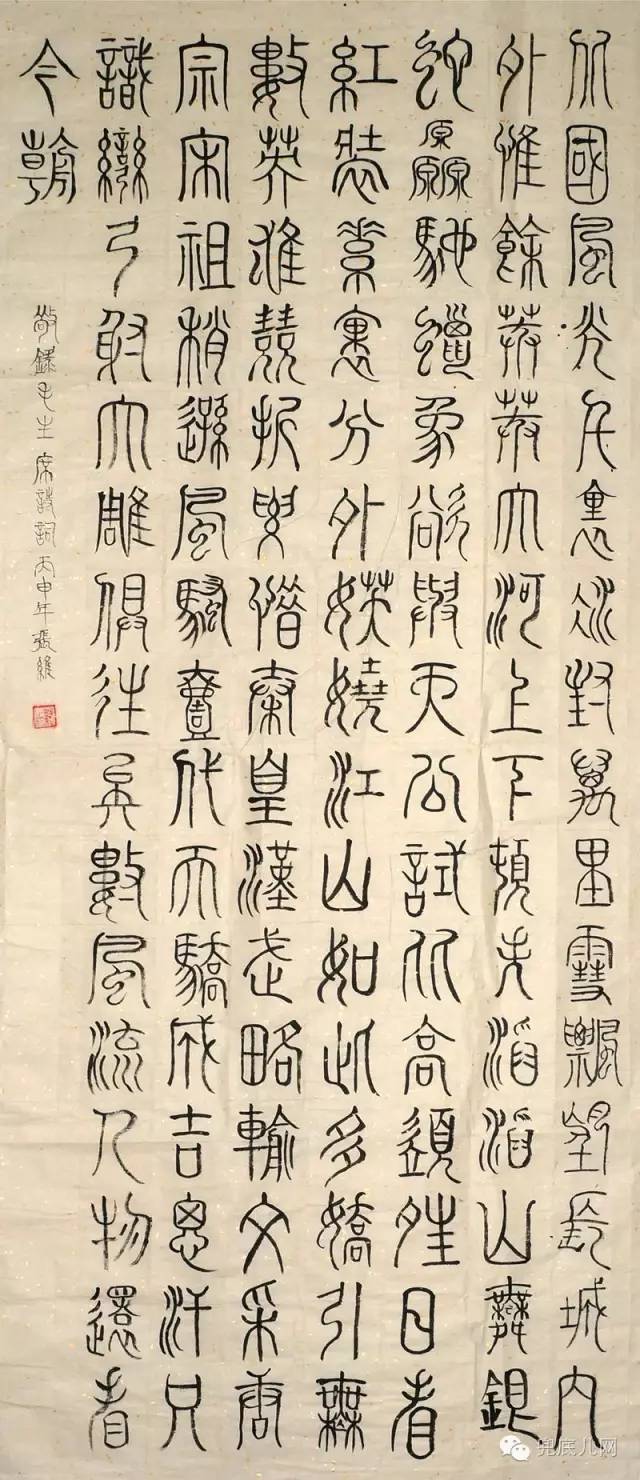 北國風光千裏冰封萬里雪飄望長城內
外惟餘莽莽大河上下頓失滔滔山舞銀
蛇厵馳蠟象欲與天公試比高須晴日看
紅裝素裹分外妖嬈江山如此多嬌引無
數英雄競折腰惜秦皇漢武略輸文采唐
宗宋祖稍遜風騷壹代天驕成吉思汗只
識彎弓射大雕俱往矣數風流人物還看
今朝
敬錄毛主席詩詞丙申年張維
兜底儿网